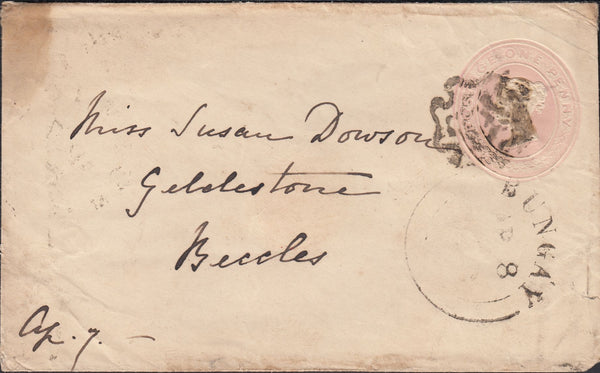 ONE PENNY
Miss Susan Dowson
Geldestone
Beccles
BUNGAY
AP 8
Ap. 7. —